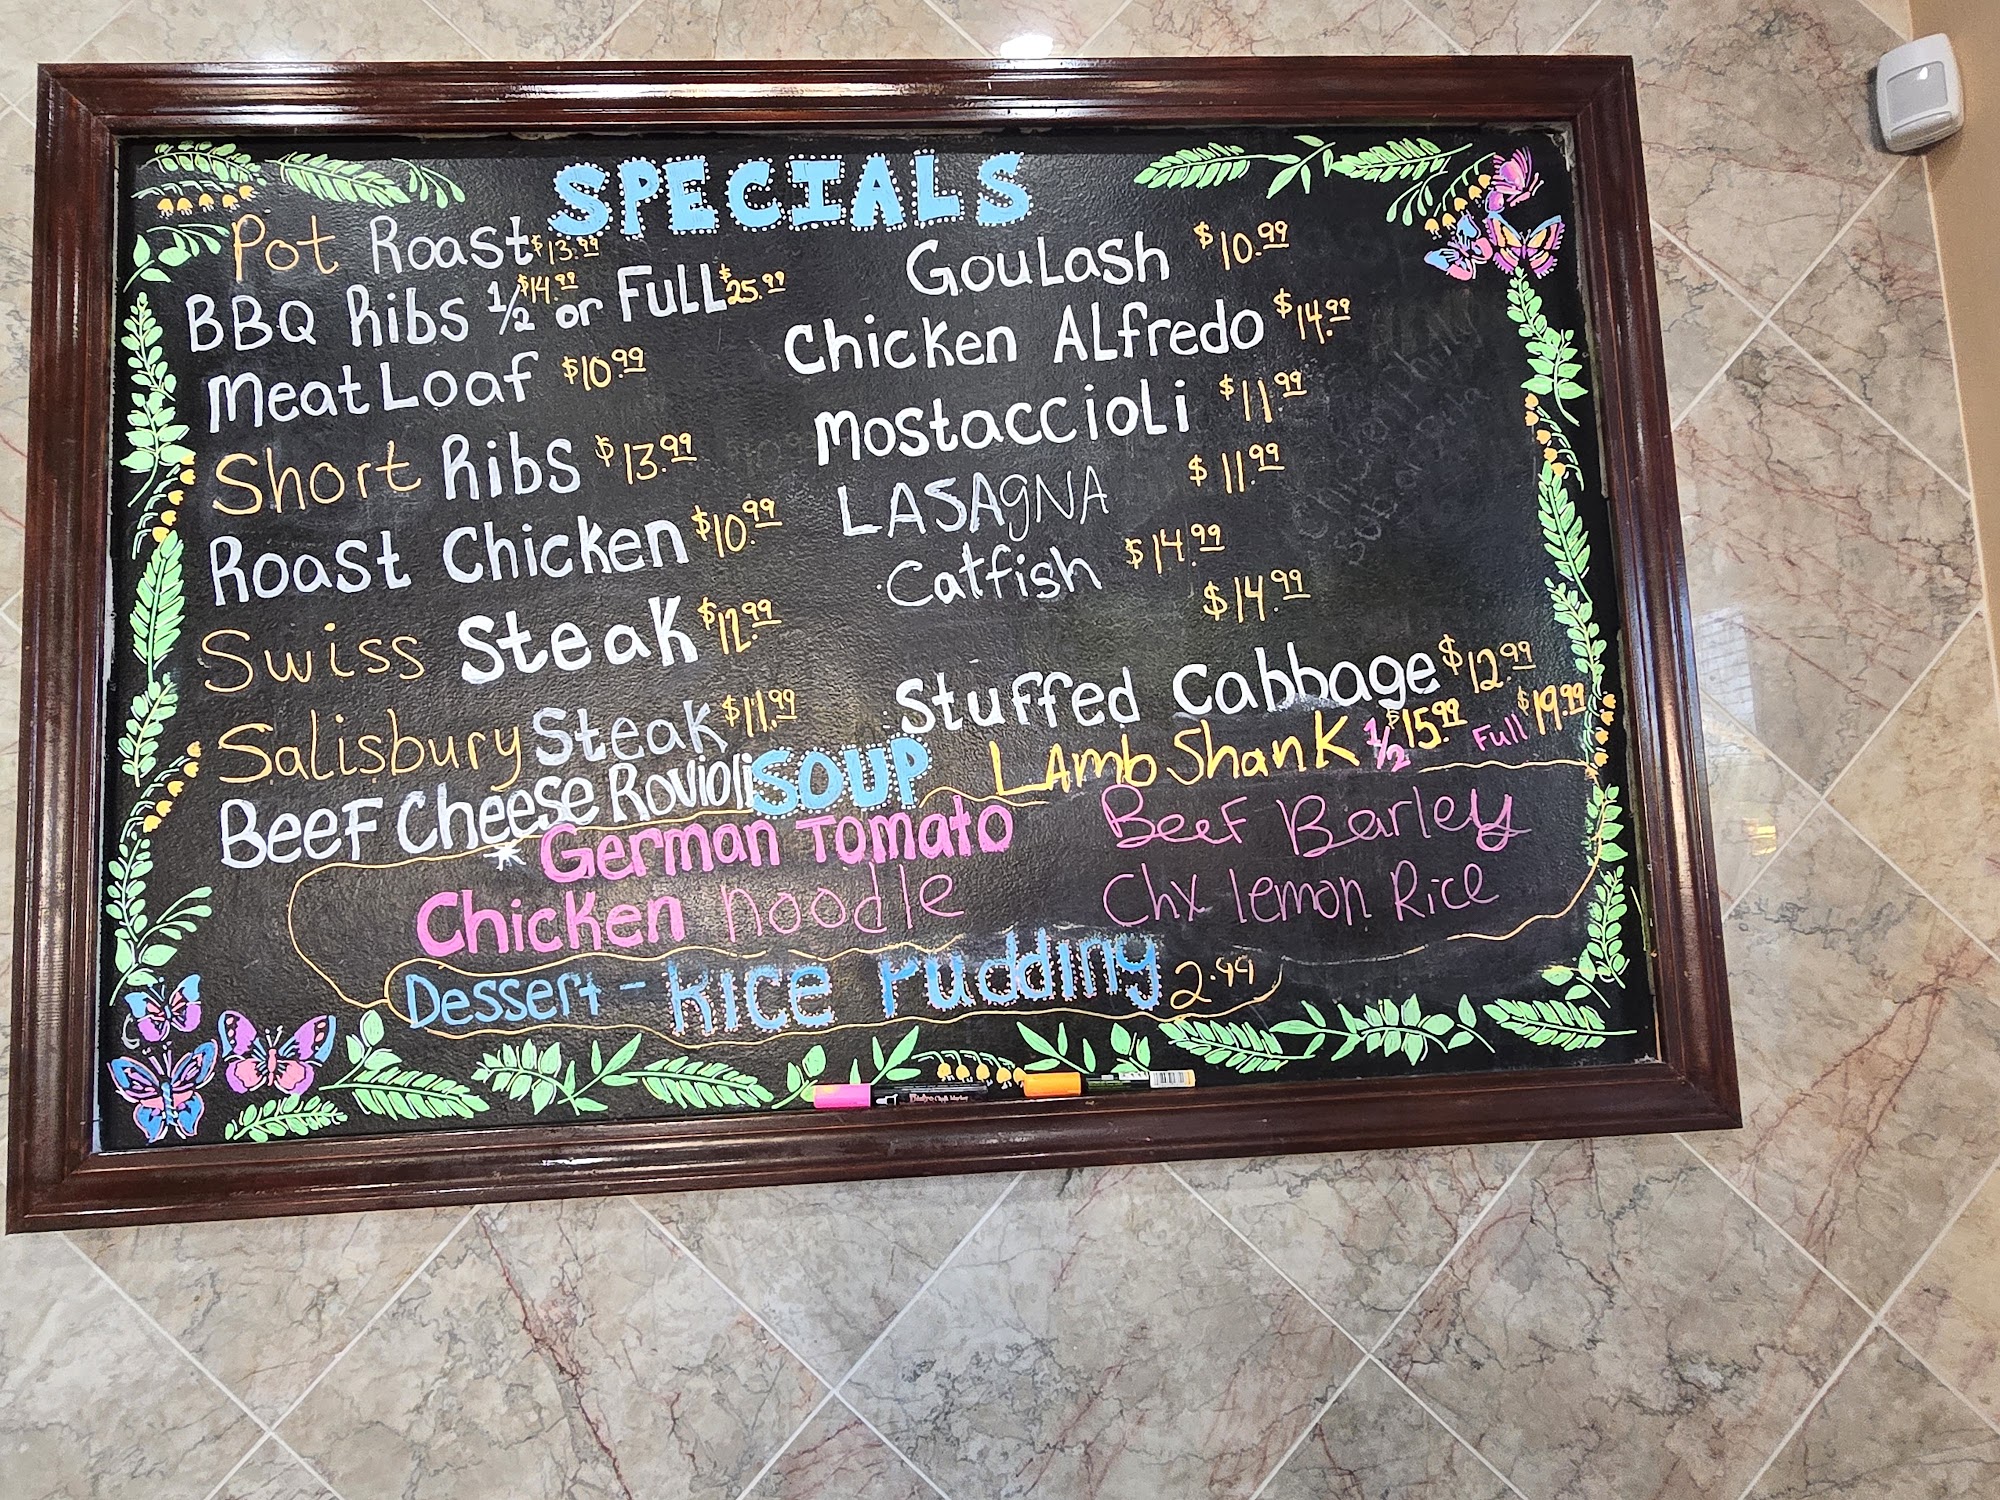 SPECIALS
Pot Roast $13.99
BBQ Ribs 1/2 $14.99 or Full $25.99
MeatLoaf $10.99
Short Ribs $13.99
Roast Chicken $10.99
Swiss Steak $12.99
Salisbury Steak $11.99
Beef Cheese Rovioli
GouLash $10.99
Chicken ALfredo $14.99
Mostaccioli $11.99
LASAgNA $11.99
Catfish $14.99
$14.99
Stuffed Cabbage $12.99
LAmb Shank 1/2 $15.99 Full $19.99
SOUP
German Tomato
Chicken noodle
Beef Barley
Chx lemon Rice
Dessert - Rice Pudding 2.99